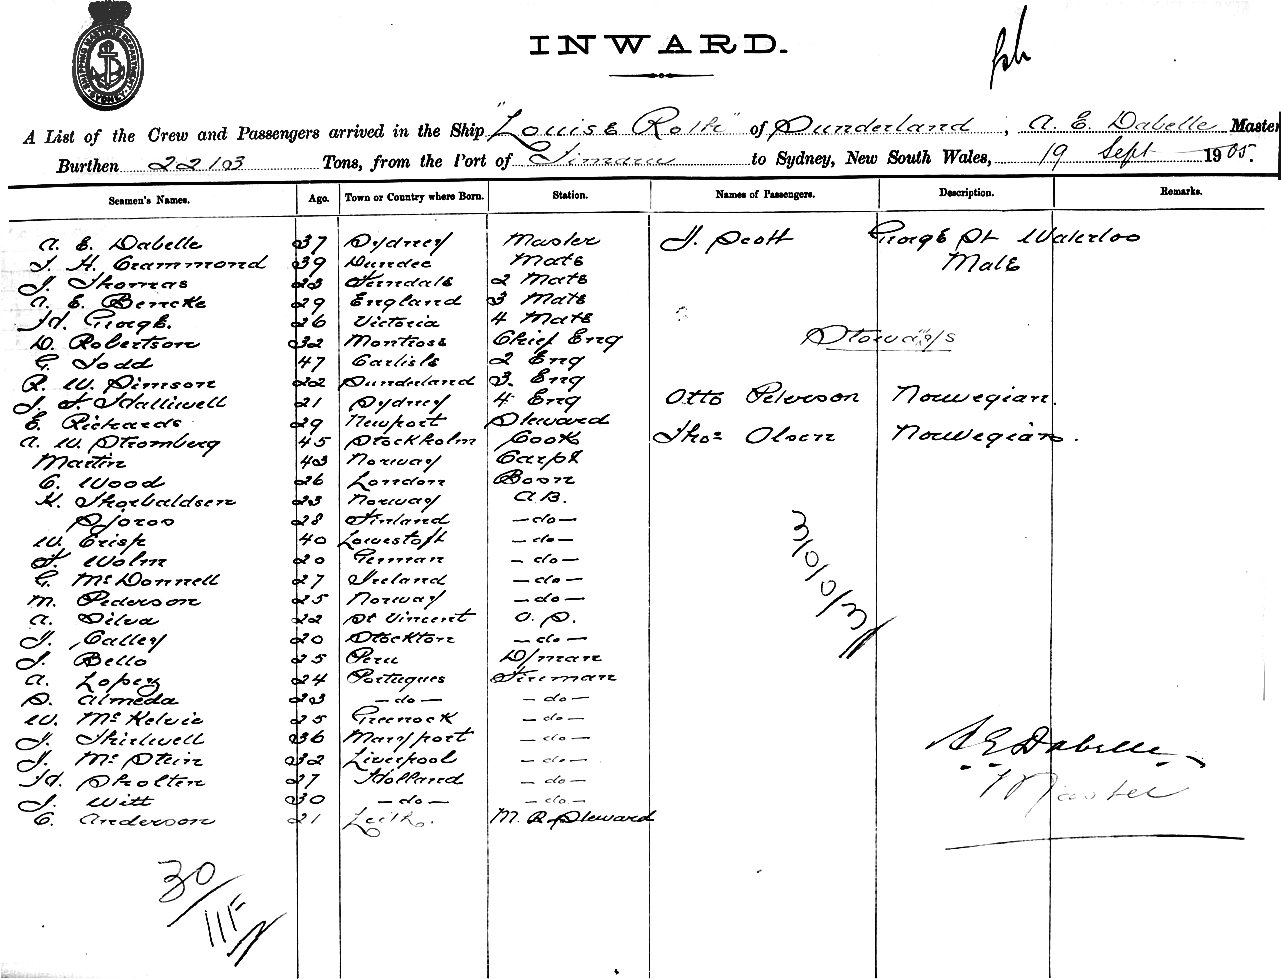 SHIPPING MASTERS DEPARTMENT SYDNEY
INWARD.
A List of the Crew and Passengers arrived in the Ship "Louise Roth" of Sunderland, A. E. Dabelle Master
Burthen 2210 Tons, from the Port of Timaru to Sydney, New South Wales, 19 Sept 1905.
Seamen's Names. Age. Town or Country where Born. Station. Names of Passengers. Description. Remarks.
A. E. Dabelle 37 Sydney Master J. Scott George St Waterloo
J. H. Crammond 39 Dundee Mate Male
J. Thomas 23 2 Mate
A. E. 29 England 3 Mate
Hd. George. 26 Victoria 4 Mate
D. Robertson 32 Montrose Chief Eng Stowaways
G. Todd 47 Carlisle 2 Eng
R. W. Simson 22 Sunderland 3. Eng
J. F. Halliwell 21 Sydney 4 Eng Otto Peterson Norwegian.
E. Rickards 29 Newport Steward
A. W. Stromberg 45 Stockholm Cook Thos Olsen Norwegian.
Martin 43 Norway Carpt
C. Wood 26 London Bosn
H. Thorbaldsen 23 Norway A B.
Sjoroo 28 Finland - do -
W. Crisp 40 Lowestoft - do -
F. Wolm 20 German - do -
G. McDonnell 27 Ireland - do -
M. Pederson 25 Norway - do -
A. Silva 22 St Vincent O. S.
J. Galley 20 Stockton - do -
J. Bello 25 Peru D/man
A. Lopez 24 Portugues Fireman
S. Almeda 23 - do - - do -
W. McKelvie 25 Greenock - do -
J. Thirlwell 36 Maryport - do -
J. McStein 32 Liverpool - do -
Hd. Sholten 27 Holland - do -
J. Witt 30 - do - - do -
C. Anderson 21 Leith. M. R Steward
A E Dabelle
Master
30